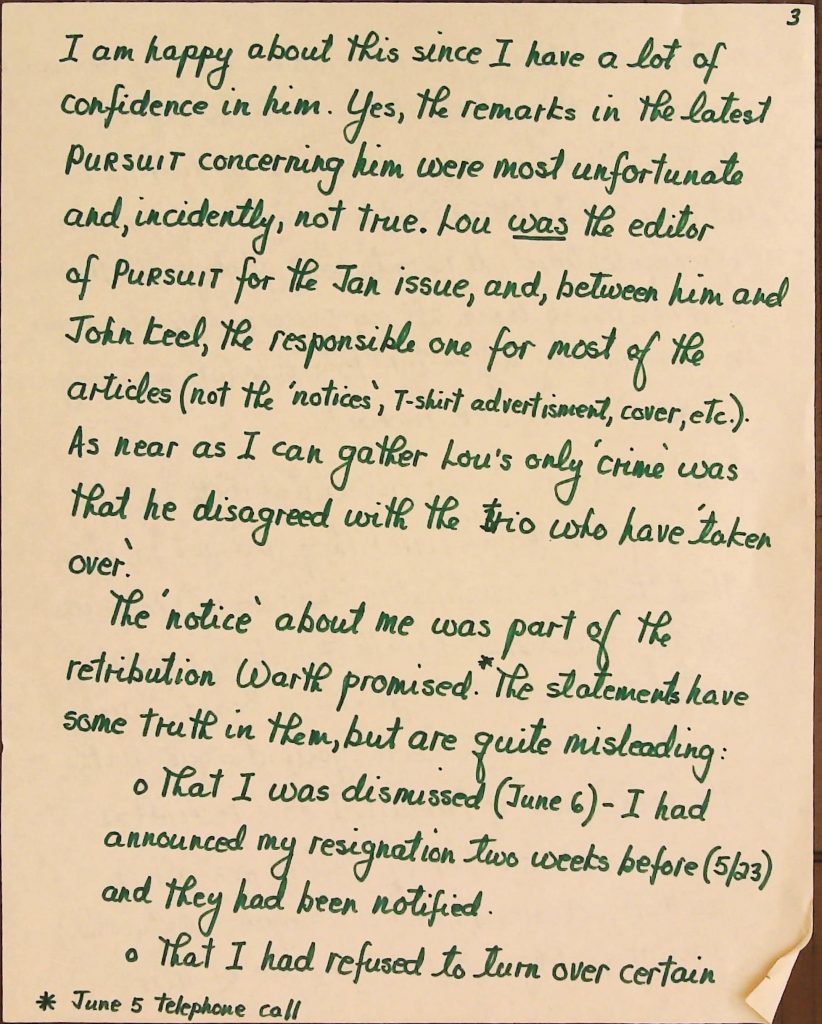 3
I am happy about this since I have a lot of
confidence in him. Yes, the remarks in the latest
PURSUIT concerning him were most unfortunate
and, incidently, not true. Lou was the editor
of PURSUIT for the Jan issue, and, between him and
John Keel, the responsible one for most of the
articles (not the 'notices', T-shirt advertisment, cover, etc.).
As near as I can gather Lou's only 'crime' was
that he disagreed with the trio who have 'taken
over.'
The 'notice' about me was part of the
retribution Warth promised.* The statements have
some truth in them, but are quite misleading:
o That I was dismissed (June 6) - I had
announced my resignation two weeks before (5/23)
and they had been notified.
o That I had refused to turn over certain
* June 5 telephone call